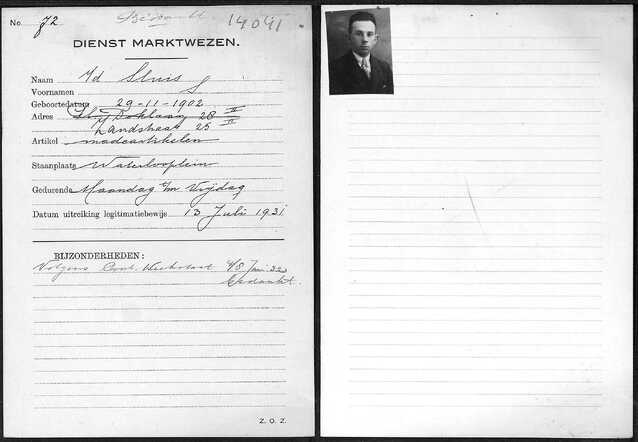 No. 72
14041
DIENST MARKTWEZEN.
Naam v/d Sluis
Voornamen S
Geboortedatum 29-11-1902
Adres 28 II
Zandstraat 25 II
Artikel modeartikelen
Staanplaats Waterlooplein
Gedurende Maandag t/m Vrijdag
Datum uitreiking legitimatiebewijs 13 Juli 1931
BIJZONDERHEDEN:
Volgens Cont. 
Z. O. Z.